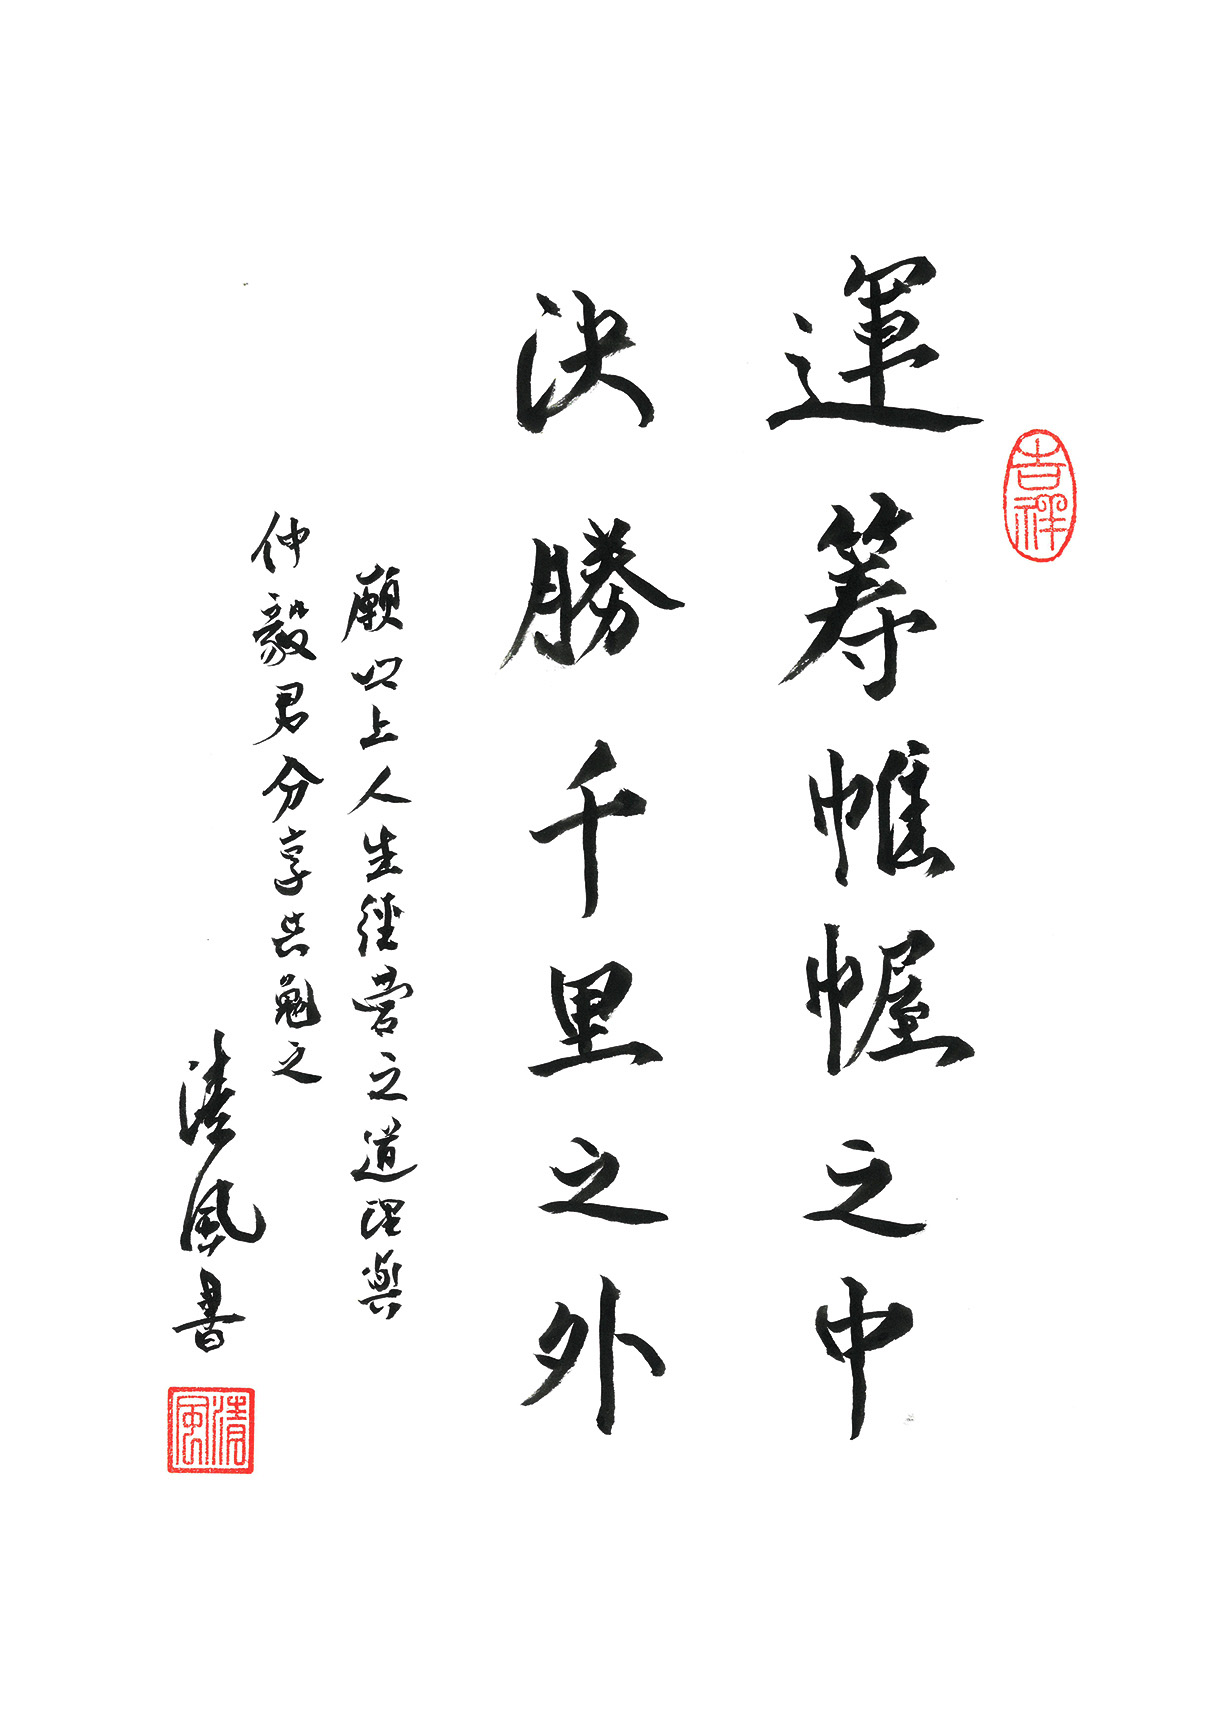 吉祥
運筹帷幄之中
決勝千里之外
願以上人生經營之道理與
仲毅君分享共勉之
清風書
清風